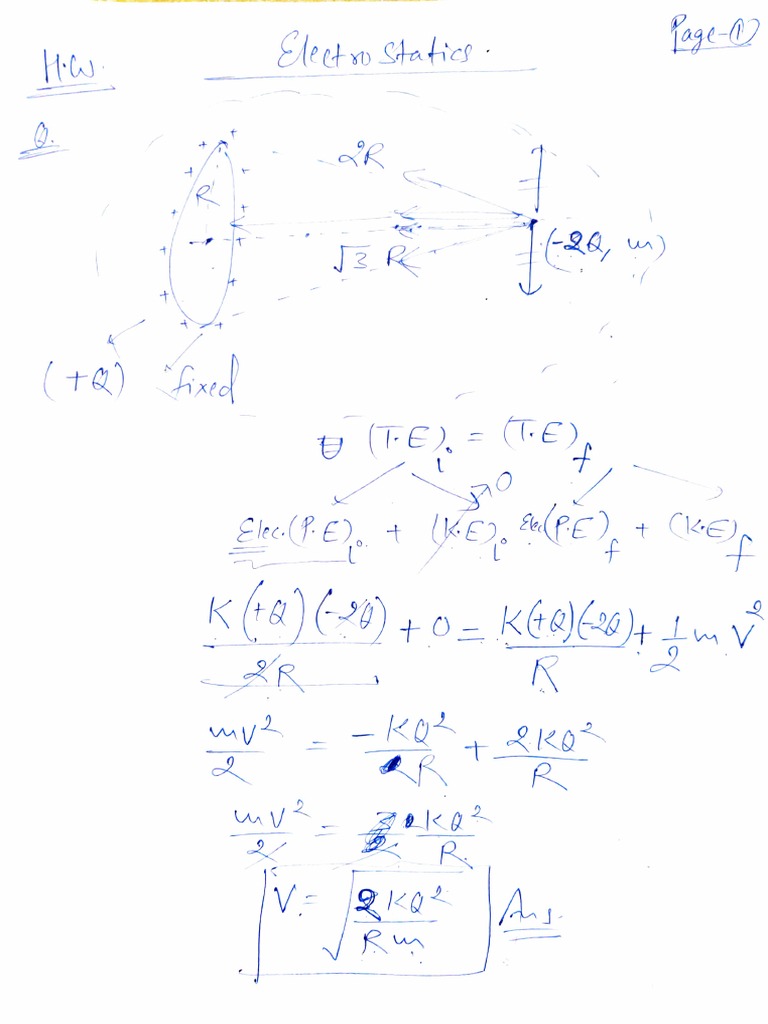 Page-①
H.W. Electrostatics.
Q.
2R
R
√3 R
(-2Q, m)
(+Q) fixed
(T.E)i = (T.E)f
0
Elec.(P.E)i + (K.E)i Elec(P.E)f + (K.E)f
K(+Q)(-2Q)/2R + 0 = K(+Q)(-2Q)/R + 1/2 m V²
mV²/2 = -KQ²/R + 2KQ²/R
mV²/2 = KQ²/R
V = √(2KQ²/Rm) Ans.